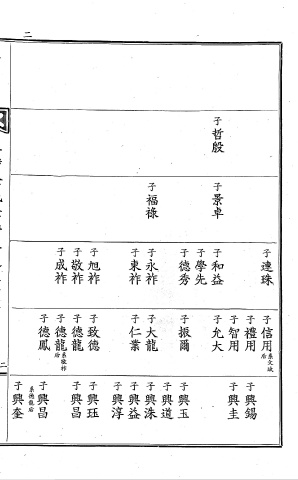 二
子哲殷
子景卓
子福祿
子連珠
子和益
子學先
子德秀
子永祚
子東祚
子旭祚
子敬祚
子成祚
子信用
子禮用
子智用
子允大
子振爾
子大龍
子仁業
子致德
子德龍
子德龍
子德鳳
子興錫
子興圭
子興玉
子興道
子興洙
子興益
子興淳
子興珏
子興昌
子興昌
系德龍后
子興奎